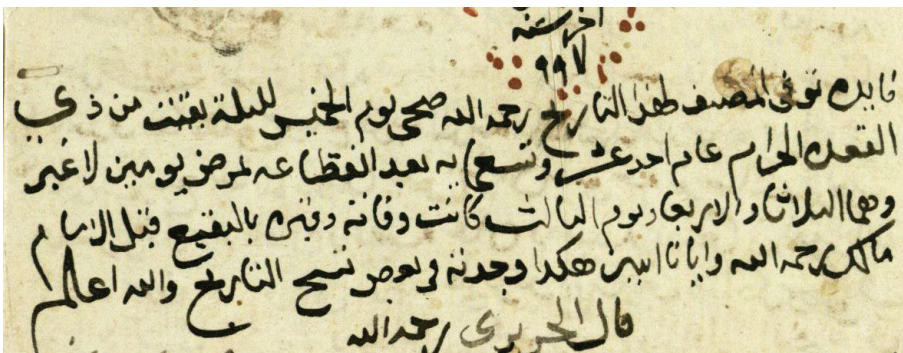 اخر سنه
٩٩٧
فايده توفى المصنف لهذا التاريخ رحمه الله ضحى يوم الخميس لليلة بقيت من ذي
القعده الحرام عام احد عشر وتسعمايه بعد انقطاعه لمرض يومين لا غير
وهما الثلاثا والاربعا ويوم الثالث كانت وفاته وقبره بالبقيع قبل الامام
مالك رحمه الله وايانا امين هكذا وجدته في بعض نسخ التاريخ والله اعلم
قال الحريري رحمه الله